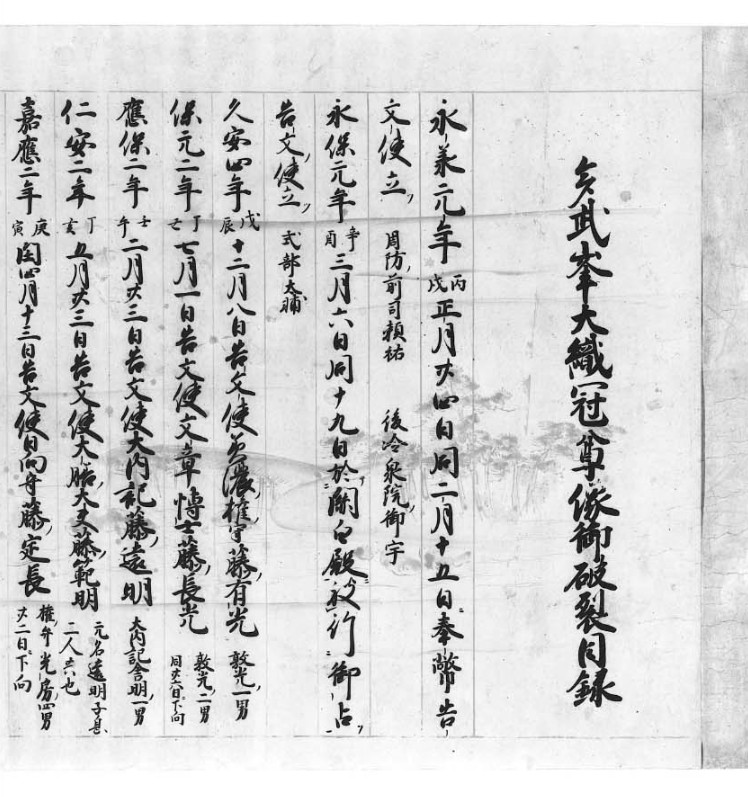 多武峯大織冠尊像御破裂目録
永承元年丙戌正月廿四日同二月十五日奉幣告
文使立 周防前司頼祐 後冷泉院御宇
永保元年辛酉三月六日同十九日於關白殿被行御占
告文使立 式部大輔
久安四年戊辰十二月八日告文使美濃権守藤有光 敦光一男
保元二年丁丑七月一日告文使文章博士藤長光 敦光二男 同廿六日下向
應保二年壬午二月廿三日告文使大内記藤遠明 大内記令明一男
仁安二年丁亥五月廿三日告文使大膳大夫藤範明 元名遠明子息二人也
嘉應二年庚寅閏四月十三日告文使日向守藤定長 権弁光房四男 廿二日下向